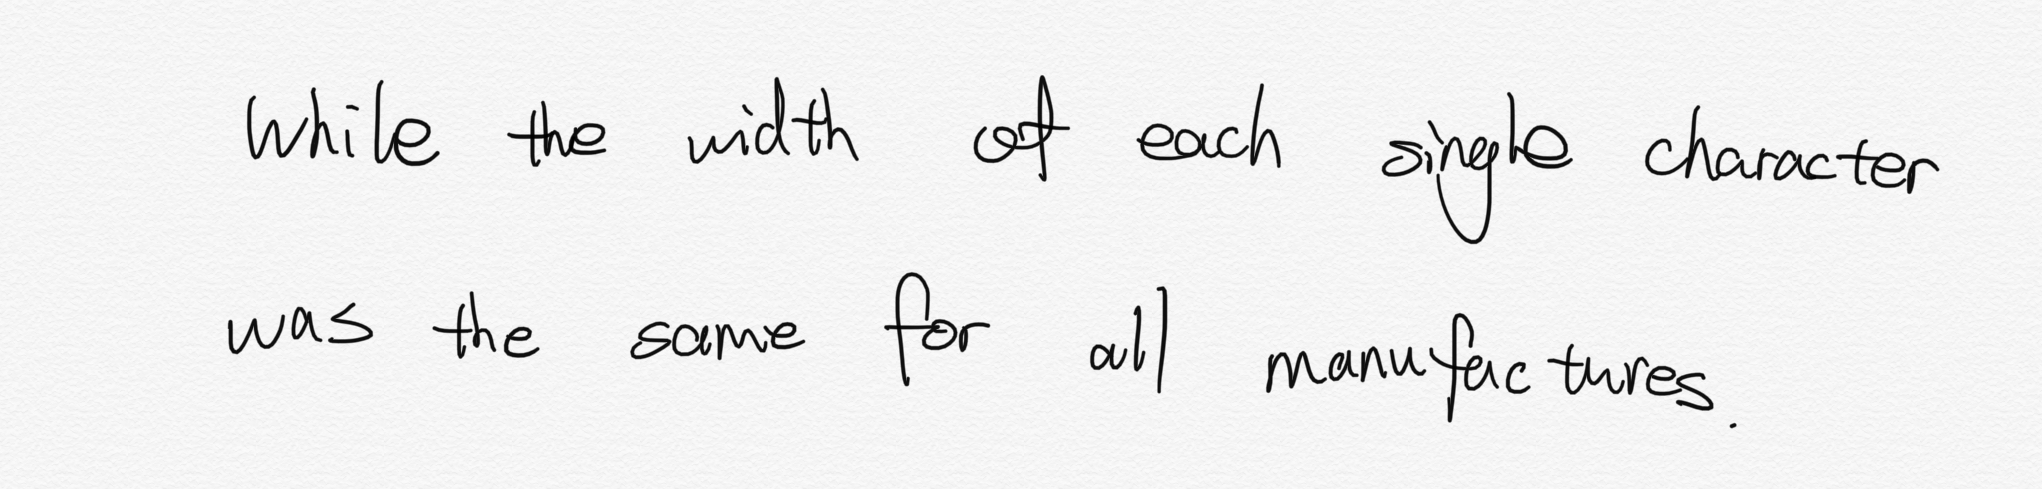 While the width of each single character
was the same for all manufactures.